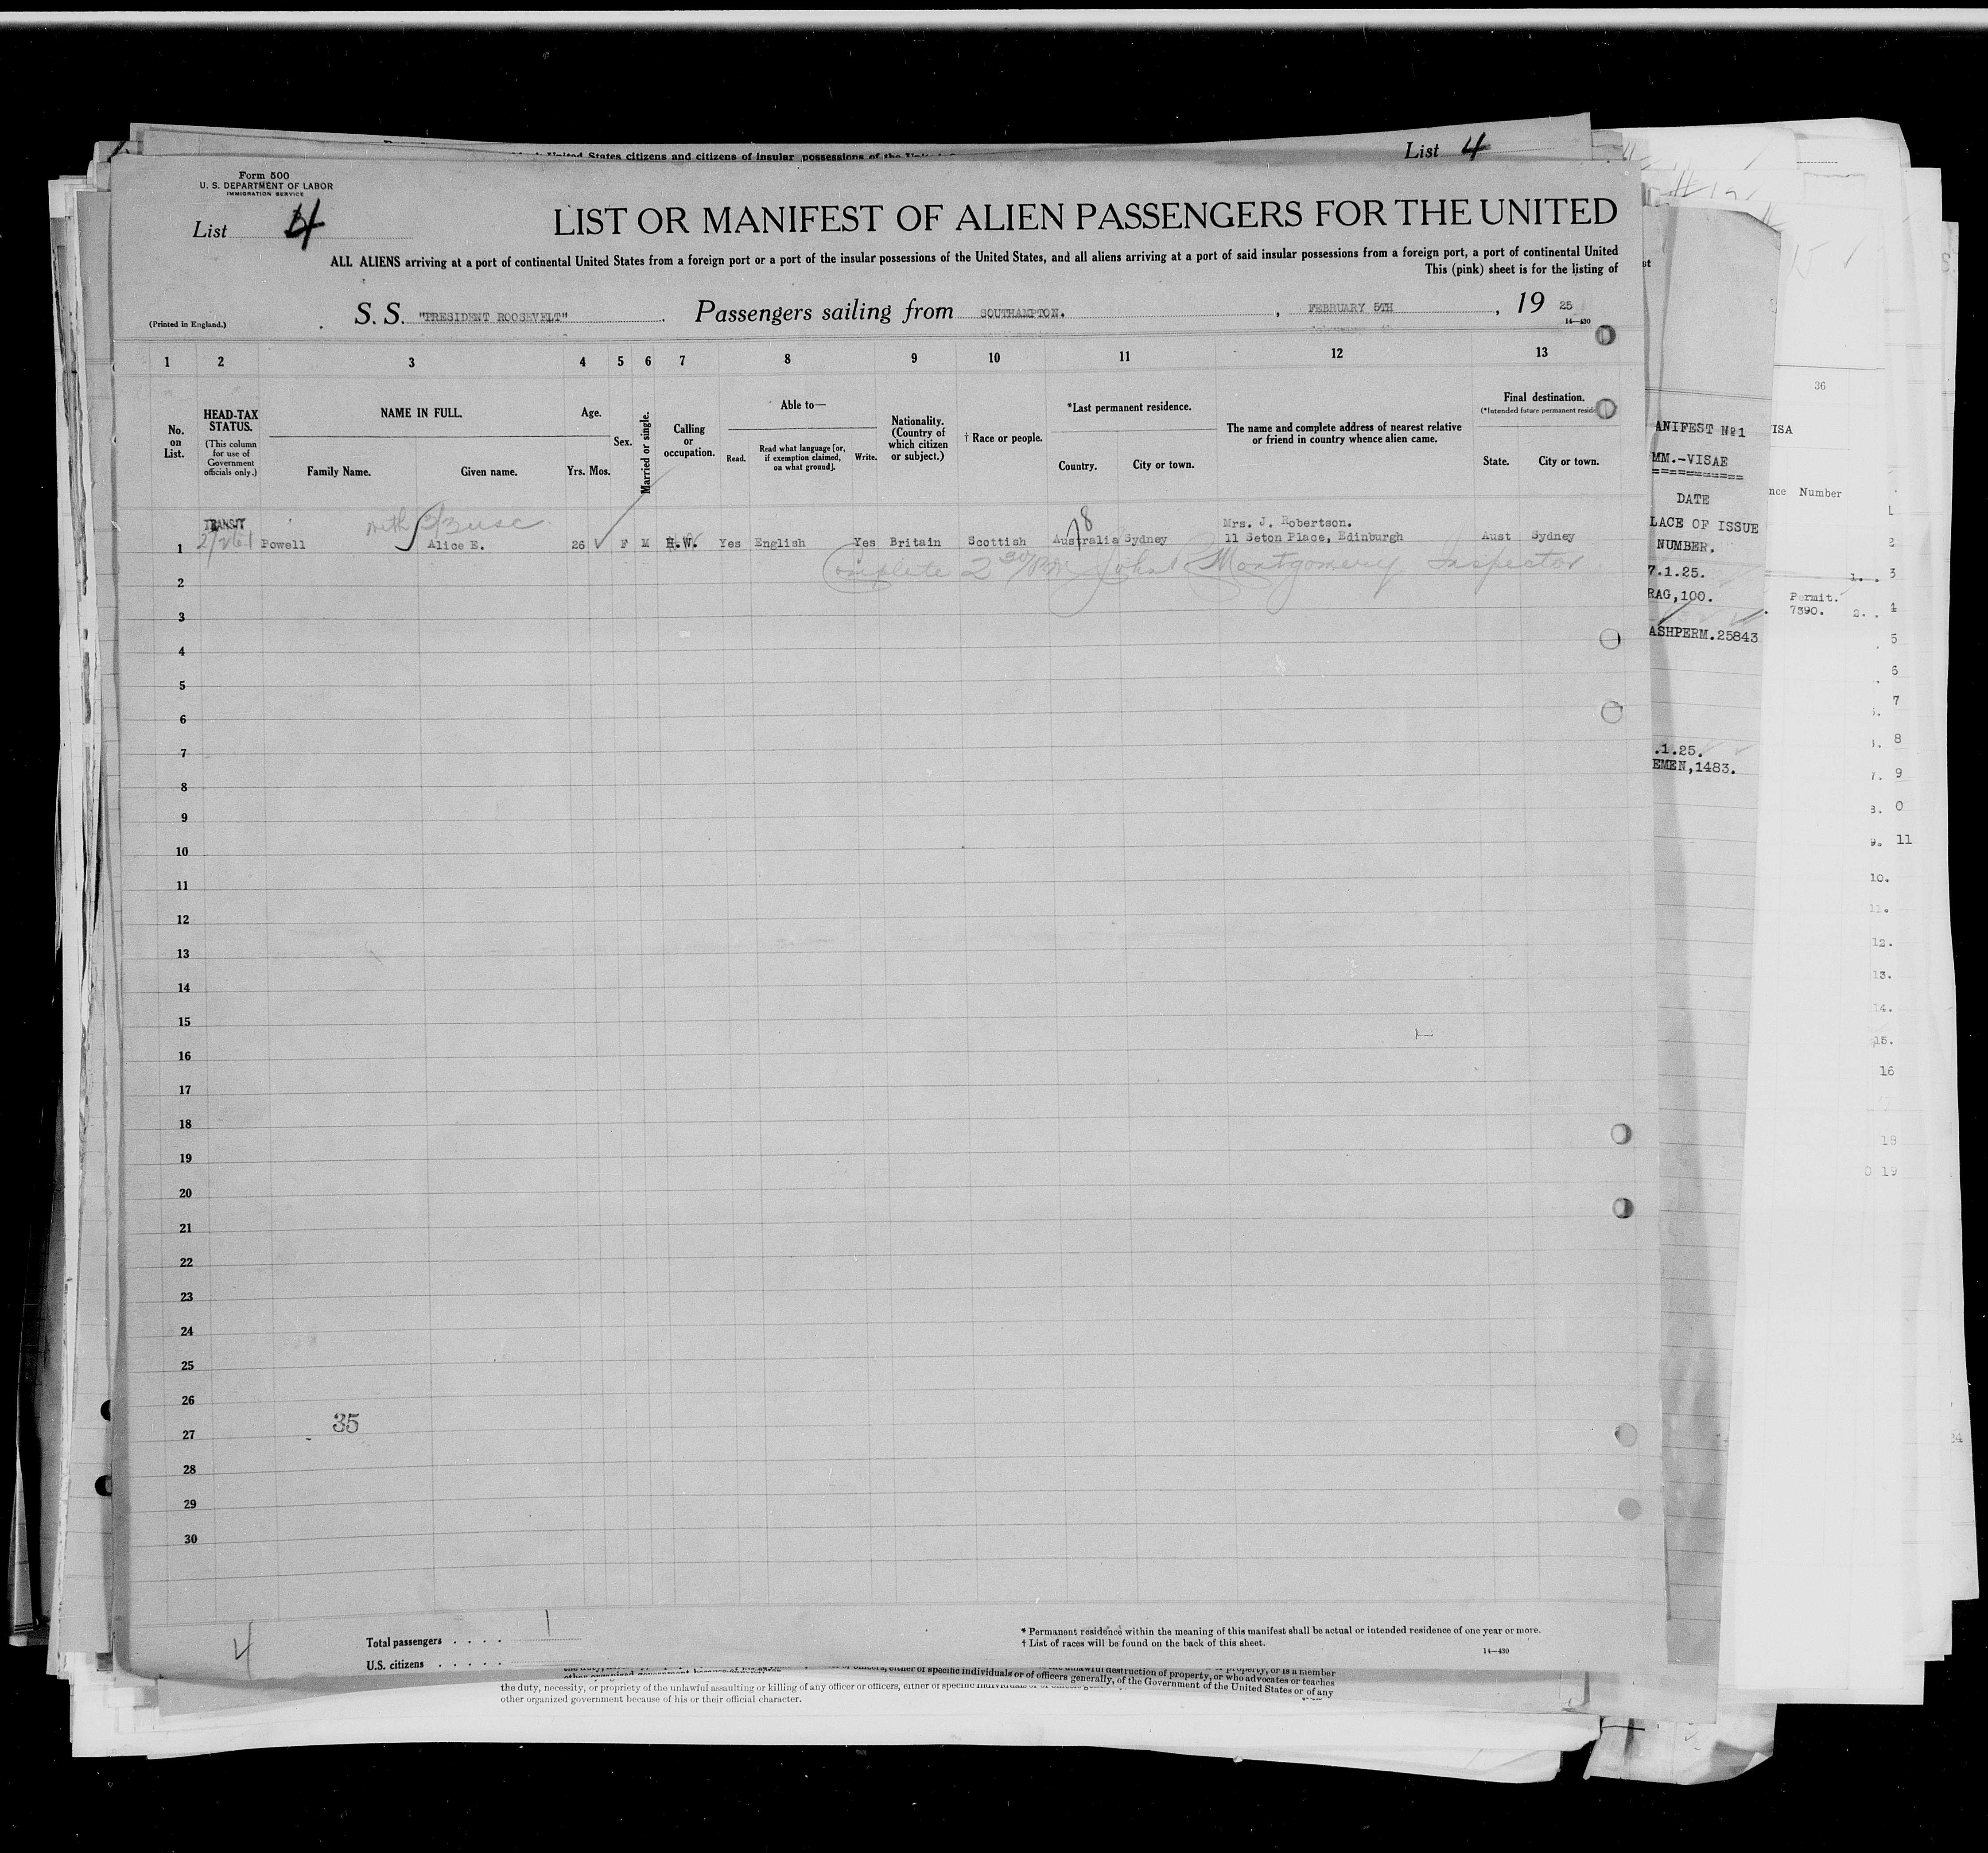 List 4
Form 500
U. S. DEPARTMENT OF LABOR
IMMIGRATION SERVICE
List 4
LIST OR MANIFEST OF ALIEN PASSENGERS FOR THE UNITED
ALL ALIENS arriving at a port of continental United States from a foreign port or a port of the insular possessions of the United States, and all aliens arriving at a port of said insular possessions from a foreign port, a port of continental United
This (pink) sheet is for the listing of
(Printed in England.)
S. S. "PRESIDENT ROOSEVELT" . Passengers sailing from SOUTHAMPTON. , FEBRUARY 5TH , 19 25
14—430
1 2 3 4 5 6 7 8 9 10 11 12 13
No. on List.
HEAD-TAX STATUS.
(This column for use of Government officials only.)
NAME IN FULL.
Family Name. Given name.
Age.
Yrs. Mos.
Sex.
Married or single.
Calling or occupation.
Able to—
Read. Read what language [or, if exemption claimed, on what ground]. Write.
Nationality. (Country of which citizen or subject.)
† Race or people.
*Last permanent residence.
Country. City or town.
The name and complete address of nearest relative or friend in country whence alien came.
Final destination.
(*Intended future permanent
State. City or town.
TRANSIT
Mrs. J. Robertson.
1 Powell Alice E. 26 F M H.W. Yes English Yes Britain Scottish Australia Sydney 11 Seton Place, Edinburgh Aust Sydney
Complete 2 30 PM John Montgomery Inspector
2
3
4
5
6
7
8
9
10
11
12
13
14
15
16
17
18
19
20
21
22
23
24
25
26
35
27
28
29
30
Total passengers . . . . 1
U.S. citizens . . . . .
* Permanent residence within the meaning of this manifest shall be actual or intended residence of one year or more.
† List of races will be found on the back of this sheet.
14—430
the duty, necessity, or propriety of the unlawful assaulting or killing of any officer or officers, either of specific
other organized government because of his or their official character.
either of specific individuals or of officers generally, of the Government of the United States or of any
ANIFEST No 1
MM.-VISAE
DATE
LACE OF ISSUE
NUMBER.
7.1.25.
RAG,100.
ASHPERM.25843
.1.25.
EMEN,1483.
36
ISA
nce Number
Permit.
7390.